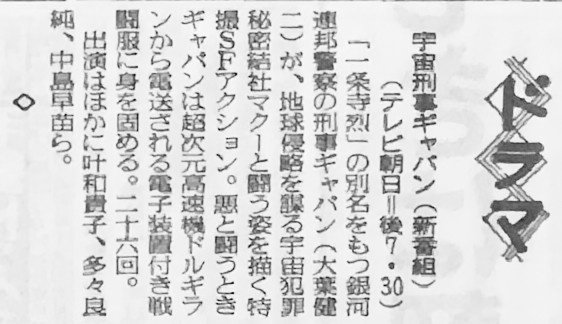 ドラマ
宇宙刑事ギャバン(新番組)
(テレビ朝日=後7・30)
「一条寺烈」の別名をもつ銀河
連邦警察の刑事ギャバン(大葉健
二)が、地球侵略を謀る宇宙犯罪
秘密結社マクーと闘う姿を描く特
撮SFアクション。悪と闘うとき
ギャバンは超次元高速機ドルギラ
ンから電送される電子装置付き戦
闘服に身を固める。二十六回。
出演はほかに叶和貴子、多々良
純、中島早苗ら。
◇